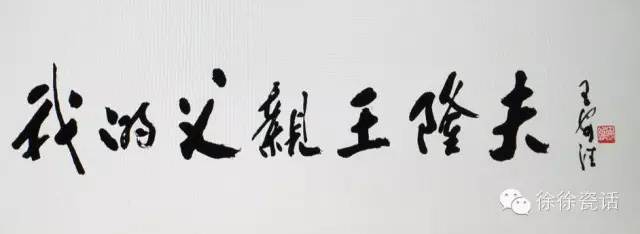 我的父親王隆夫
徐徐瓷话